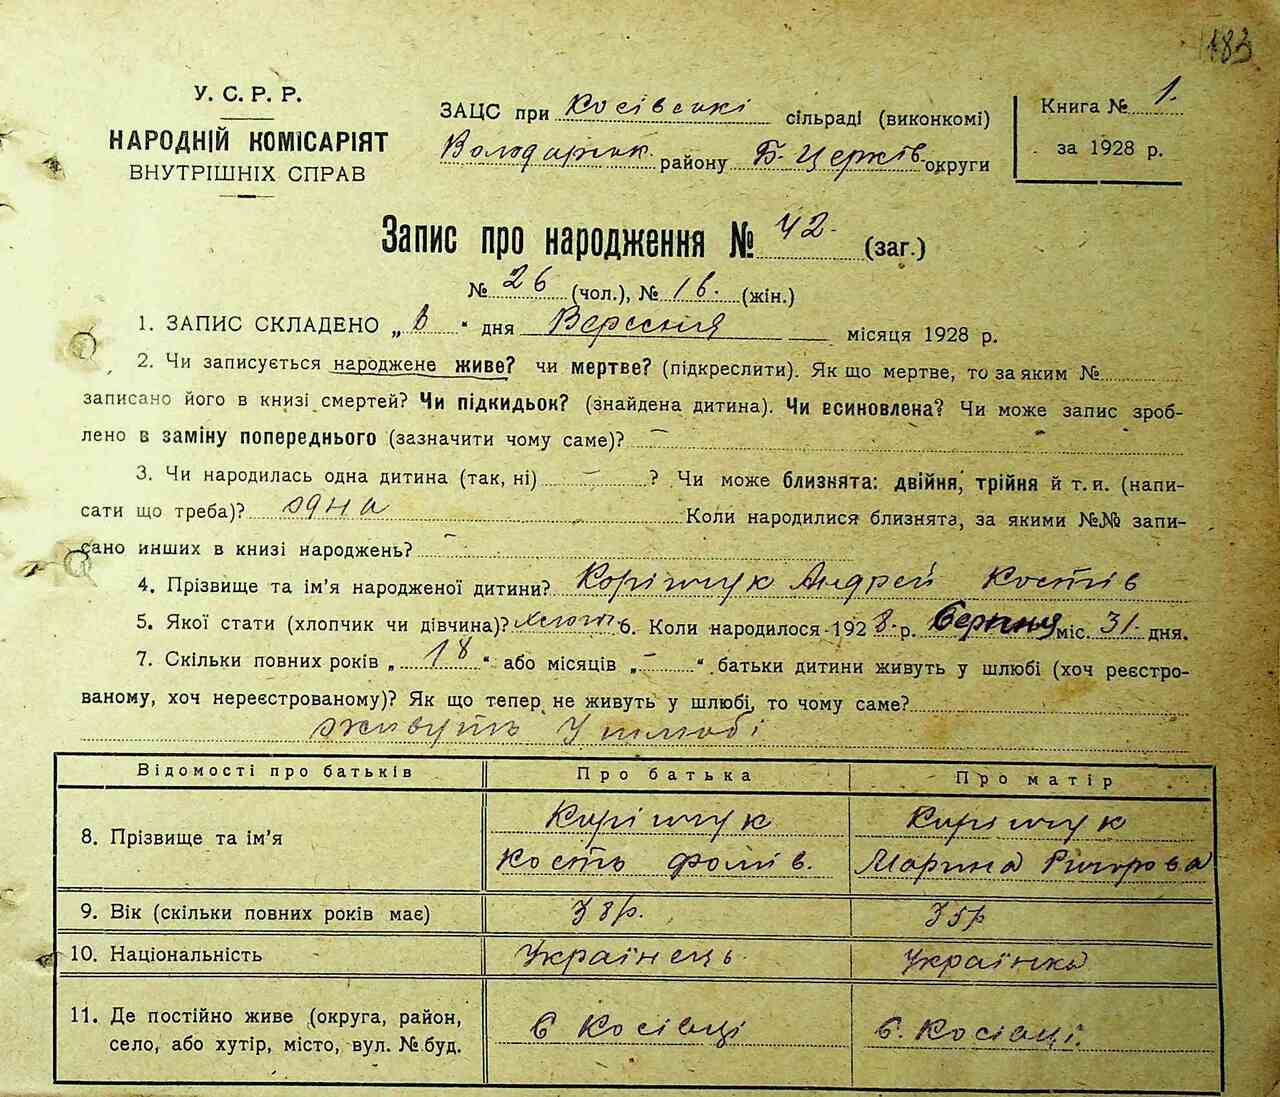 183
У. С. Р. Р.
НАРОДНІЙ КОМІСАРІЯТ
ВНУТРІШНІХ СПРАВ
ЗАЦС при Косівські сільраді (виконкомі)
Володарськ. району Б-Церків округи
Книга № 1.
за 1928 р.
Запис про народження № 42. (заг.)
№ 26 (чол.), № 16. (жін.)
1. ЗАПИС СКЛАДЕНО „6“ дня Вересня місяця 1928 р.
2. Чи записується народжене живе? чи мертве? (підкреслити). Як що мертве, то за яким №
записано його в книзі смертей? Чи підкидьок? (знайдена дитина). Чи всиновлена? Чи може запис зроб-
лено в заміну попереднього (зазначити чому саме)? —
3. Чи народилась одна дитина (так, ні) — ? Чи може близнята: двійня, трійня й т. и. (напи-
сати що треба)? одна Коли народилися близнята, за якими №№ запи-
сано инших в книзі народжень? —
4. Прізвище та ім'я народженої дитини? Корішчук Андрей Костів
5. Якої стати (хлопчик чи дівчина)? хлоп. 6. Коли народилося 1928 р. Серпня міс. 31 дня.
7. Скільки повних років „18“ або місяців „—“ батьки дитини живуть у шлюбі (хоч реєстро-
ваному, хоч нереєстрованому)? Як що тепер не живуть у шлюбі, то чому саме?
живуть у шлюбі
Відомості про батьків Про батька Про матір
8. Прізвище та ім'я Кирішчук Кирішчук
Кость Фомів. Марина
9. Вік (скільки повних років має) 38р. 35р
10. Національність Українець. Українка
11. Де постійно живе (округа, район,
село, або хутір, місто, вул. № буд.
с Косівці с. Косівці.